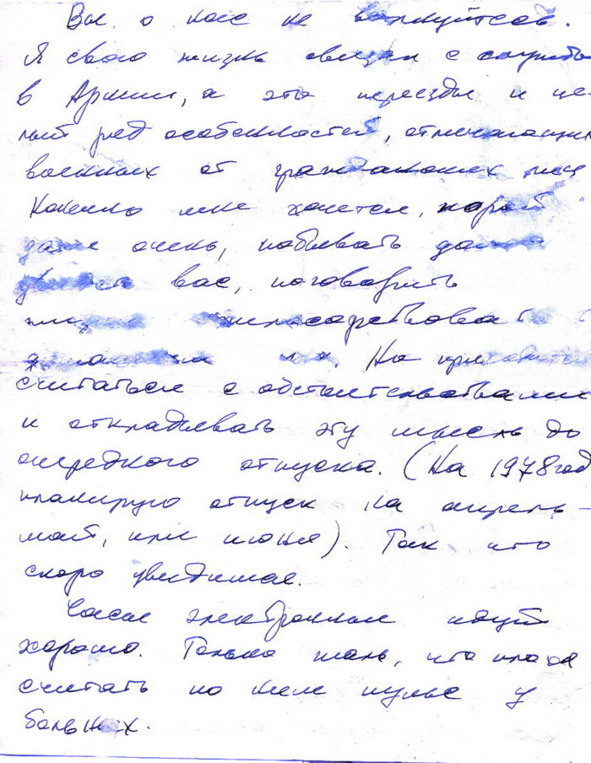 Вы о нас не волнуйтесь.
Я свою жизнь связал с службой
в Армии, а это переезды и це-
лый ряд особенностей, отличающих
военных от гражданских лиц
Конечно мне хочется, порой
даже очень, побывать дома
увидеть вас, поговорить
философствовать с
Но приходится
считаться с обстоятельствами
и откладывать эту мысль до
очередного отпуска. (На 1978 год
планирую отпуск на апрель-
май, или июнь). Так что
скоро увидимся.
Часы электронные идут
хорошо. Только жаль, что плохо
считать по ним пульс у
больных.